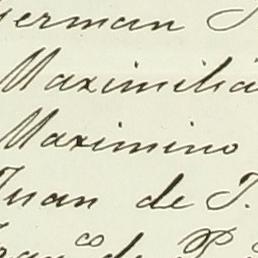 German J.
Maximiliá
Maximino
Juan de J.
Franco de P.